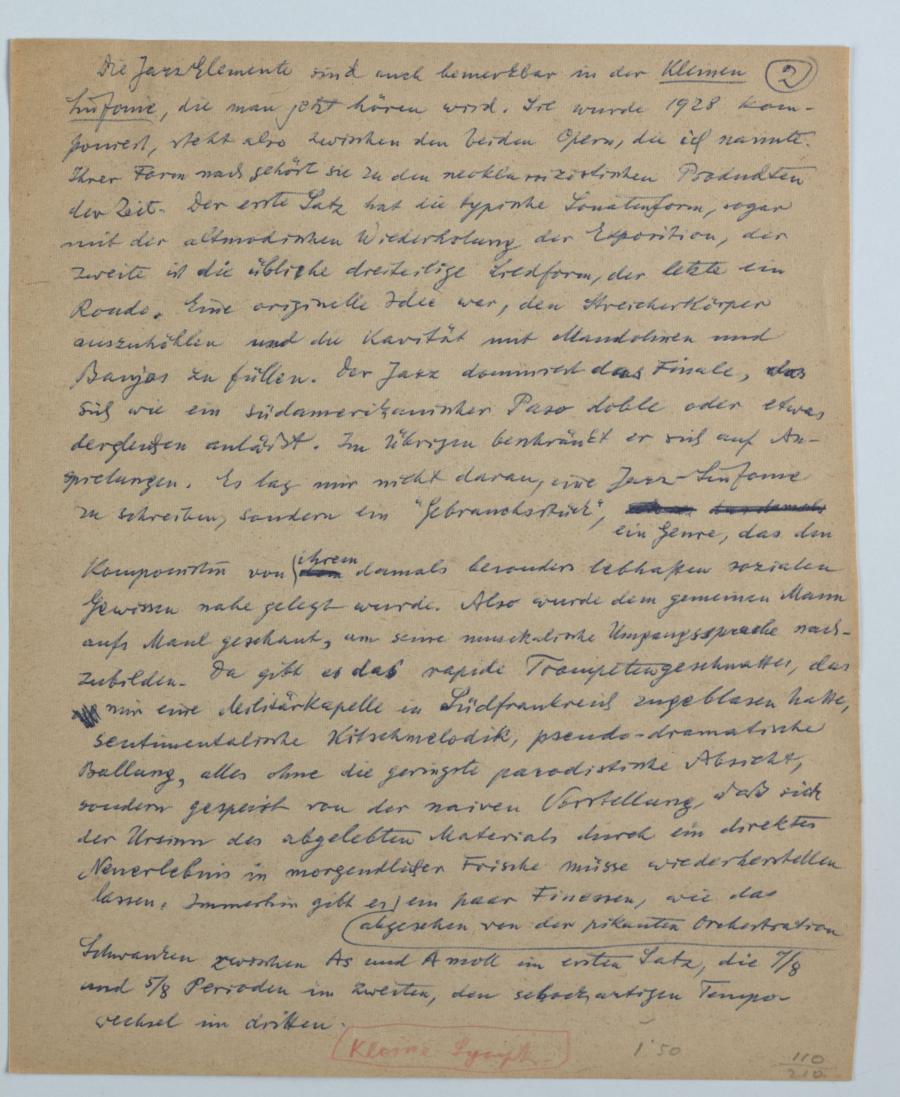 Die Jazz Elemente sind auch bemerkbar in der Kleinen ②
Sinfonie, die man jetzt hören wird. Sie wurde 1928 kom-
poniert, steht also zwischen den beiden Opern, die ich nannte.
Ihrer Form nach gehört sie zu den neoklassizistischen Produkten
der Zeit. Der erste Satz hat die typische Sonatenform, sogar
mit der altmodischen Wiederholung der Exposition, der
zweite ist die übliche dreiteilige Liedform, der letzte ein
Rondo. Eine originelle Idee war, den Streicherkörper
auszuhöhlen und die Kavität mit Mandolinen und
Banjos zu füllen. Der Jazz dominiert das Finale, das
sich wie ein südamerikanischer Paso doble oder etwas
dergleichen anläßt. Im Übrigen beschränkt er sich auf An-
spielungen. Es lag mir nicht daran, eine Jazz-Sinfonie
zu schreiben, sondern ein "Gebrauchsstück",
ein Genre, das den
Komponisten von ihrem damals besonders lebhaften sozialen
Gewissen nahe gelegt wurde. Also wurde dem gemeinen Mann
aufs Maul geschaut, um seine musikalische Umgangssprache nach-
zubilden. Da gibt es das rapide Trompetengeschnatter, das
mir eine Militärkapelle in Südfrankreich zugeblasen hatte,
sentimentalische Kitschmelodik, pseudo-dramatische
Ballung, alles ohne die geringste parodistische Absicht,
sondern gespeist von der naiven Vorstellung, daß sich
der Ursinn des abgelebten Materials durch ein direktes
Neuerlebnis in morgendlicher Frische müsse wiederherstellen
lassen. Immerhin gibt es ein paar Finessen, wie das
(abgesehen von der pikanten Orchestration
Schwanken zwischen As und A moll im ersten Satz, die 7/8
und 5/8 Perioden im zweiten, den schockartigen Tempo-
wechsel im dritten.
Kleine Symph.
1'50
110
210